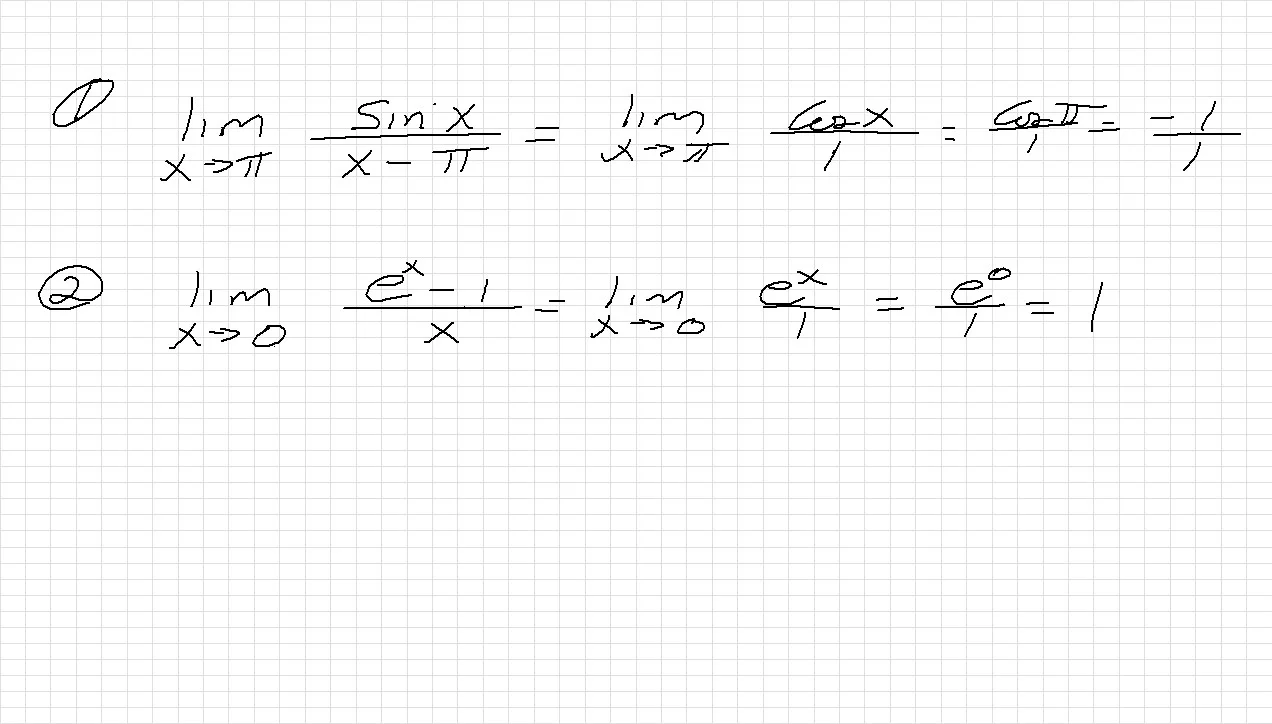 ① lim x→π sin x / (x − π) = lim x→π cos x / 1 = cos π / 1 = −1 / 1
② lim x→0 (e^x − 1) / x = lim x→0 e^x / 1 = e^0 / 1 = 1